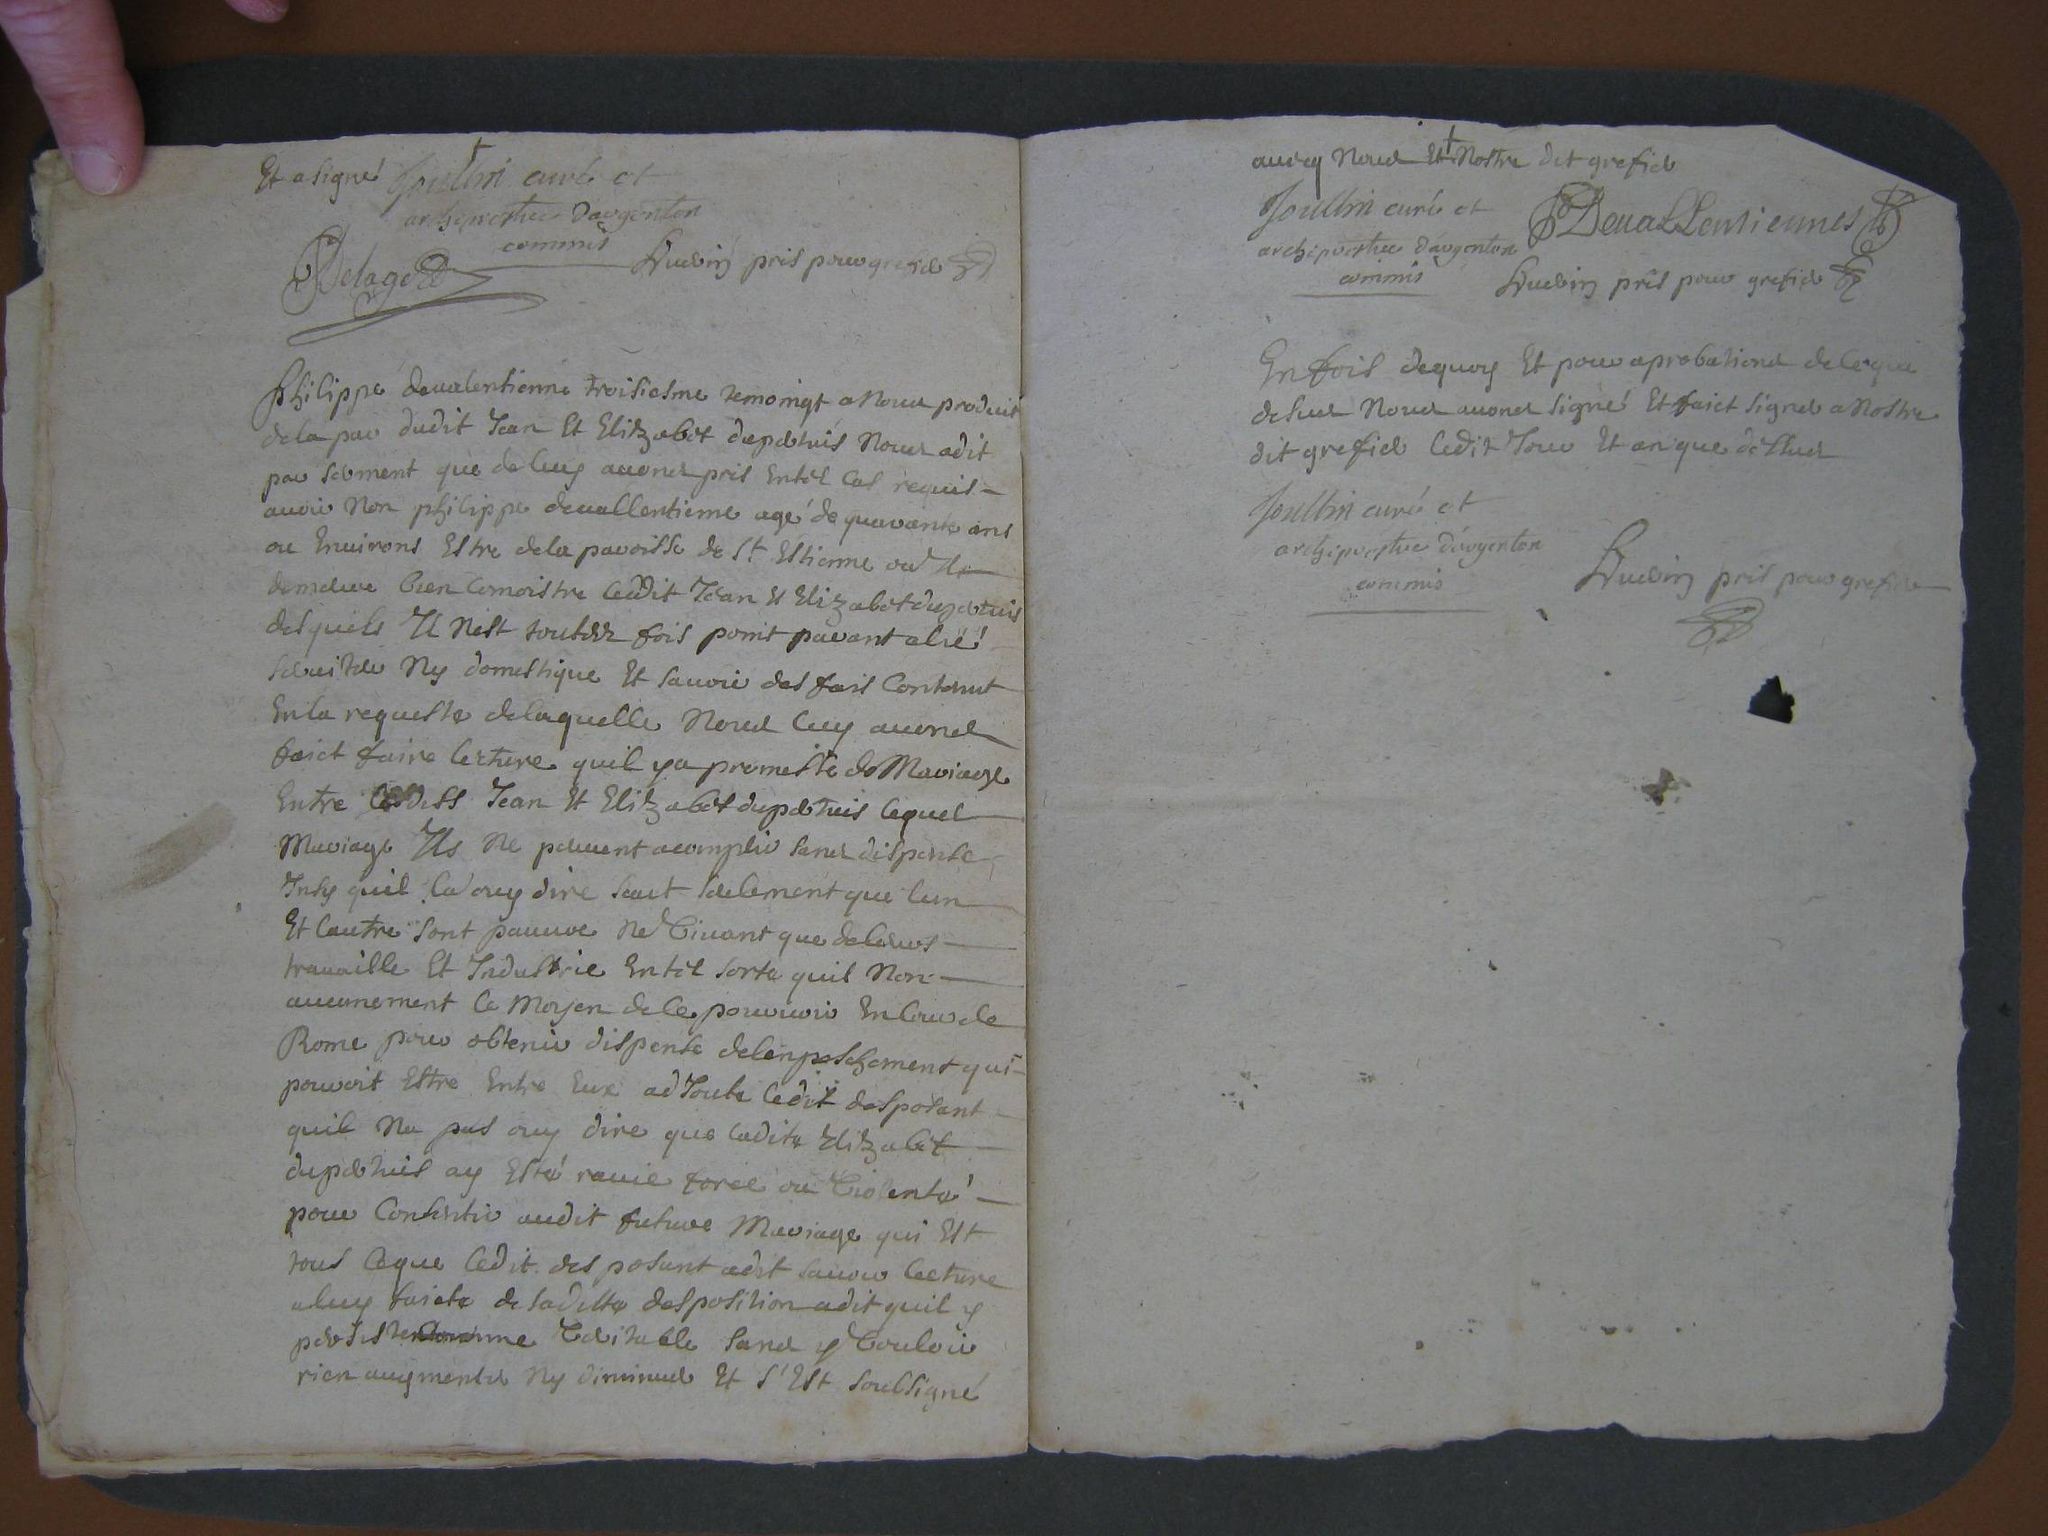 Et a signé Joullin curé et
archiprestre d'argenton
commis
Delage
pris pour grefier
Philippe devalentienne troisiesme temoingt a nous produit
de la par dudit Jean Et Elitzabet dupertuis nous a dit
par serment que de luy avons pris En tel cas requis
avoir non philippe devallentienne agé de quarante ans
ou Environs Estre de la paroisse de St Estienne ou Il
demeure bien connoistre ledit Jean Et Elitzabet dupertuis
desquels Il n'est toutes fois point parant alié
serviteur ny domestique Et savoir des fais contenut
En la requeste de laquelle nous luy avons
faict faire lecture quil y a promesse de Mariage
Entre lesdits Jean Et Elitzabet dupertuis lequel
Mariage Ils ne peuvent acomplir sans dispense
Insy quil la ouy dire scait seulement que lun
Et lautre sont pauvre ne vivant que de leurs
travaille Et Industrie En tel sorte quil non
aucunement le moyen de le pourvoir En cour de
Rome pour obtenir dispense de lenpeschement qui
pouroit Estre Entre Eux adjoute ledit desposant
quil na pas ouy dire que ladite Elitzabet
dupertuis ay Esté ravie forcé ou violenté
pour consentir audit future Mariage qui Est
tous ce que ledit desposant a dit savoir lecture
a luy faicte de sa ditte desposition a dit quil y
persiste comme veritable sans y vouloir
rien augmenter ny diminuer Et s'Est soubsigné
avecq nous Et nostre dit grefier
Joullin curé et
archiprestre d'argenton
commis
Devallentiennes
pris pour grefier
En fois dequoy Et pour aprobations de ce que
desus nous avons signé Et faict signer a nostre
dit grefier ledit Jour Et an que desus
Joullin curé et
archiprestre d'argenton
commis
pris pour grefier